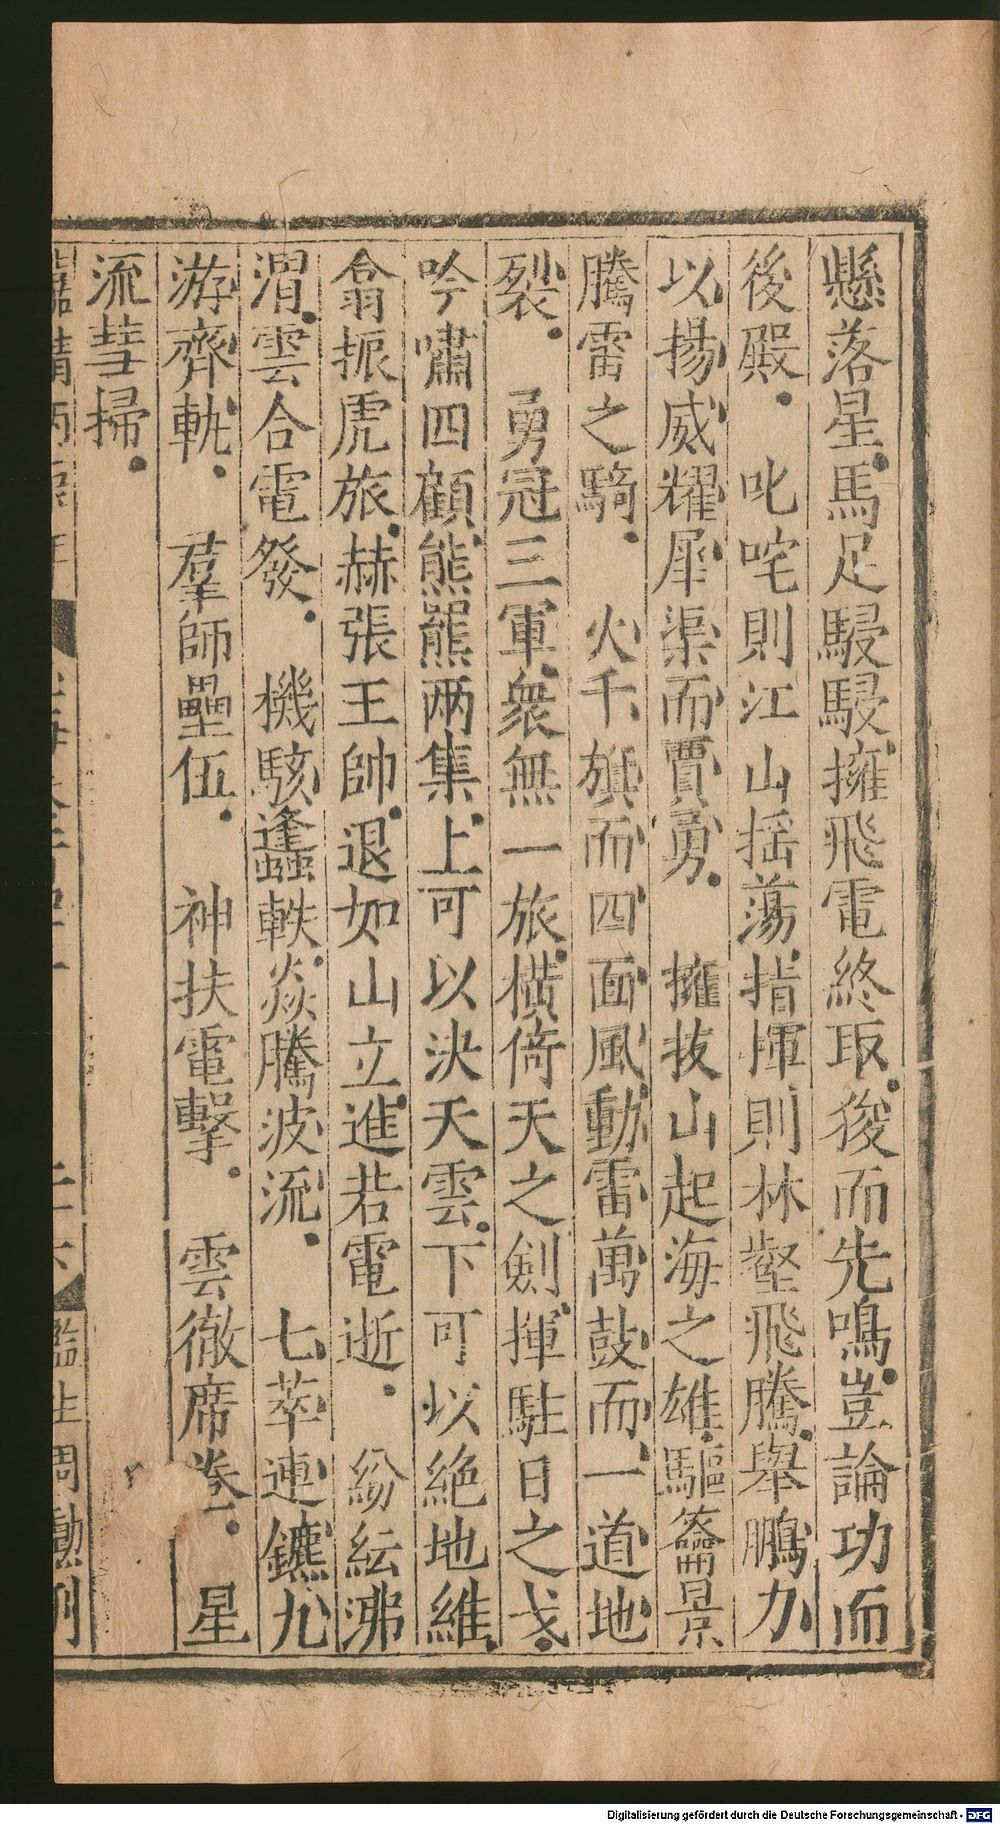 懸落星馬足駸駸擁飛電終取後而先鳴豈論功而
後殿　叱咤則江山摇蕩指揮則林壑飛騰舉鵬力
以揚威耀犀渠而賈勇　擁拔山起海之雄驅籋景
騰雷之騎　火千旗而四面風動雷萬鼓而一道地
裂　勇冠三軍衆無一旅橫倚天之劍揮駐日之戈
吟嘯四顧熊羆两集上可以決天雲下可以絕地維
翕振虎旅赫張王帥退如山立進若電逝　紛紜沸
渭雲合電發　機駭蠭軼焱騰波流　七萃連鑣九
游齊軌　羣師壘伍　神扶電擊　雲徹席卷　星
流彗掃
監生周勳刊
Digitalisierung gefördert durch die Deutsche Forschungsgemeinschaft - DFG